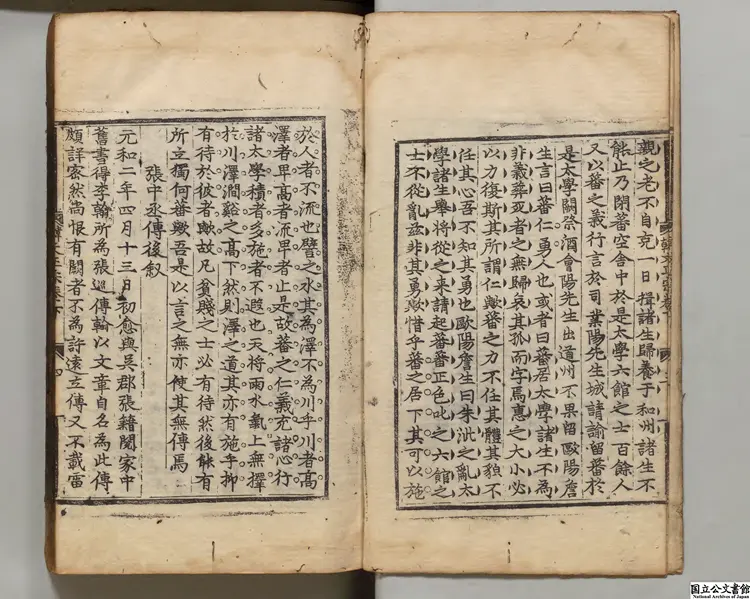 親之老不自克一日揖諸生歸養于和州諸生不
能止乃閉蕃空舍中於是太學六館之士百餘人
又以蕃之義行言於司業陽先生城請諭留蕃於
是太學闕祭酒會陽先生出道州不果留歐陽詹
生言曰蕃仁勇人也或者曰蕃居太學諸生不為
非義葬死者之無歸哀其孤而字焉惠之大小必
以力復斯其所謂仁歟蕃之力不任其體其貌不
任其心吾不知其勇也歐陽詹生曰朱泚之亂太
學諸生舉將從之來請起蕃蕃正色叱之六館之
士不從亂茲非其勇歟惜乎蕃之居下其可以施
於人者不流也譬之水其為澤不為川乎川者高
澤者卑高者流卑者止是故蕃之仁義充諸心行
諸太學積者多施者不遐也天將雨水氣上無擇
於川澤澗谿之高下然則澤之道其亦有施乎抑
有待於彼者歟故凡貧賤之士必有待然後能有
所立獨何蕃歟吾是以言之無亦使其無傳焉
張中丞傳後叙
元和二年四月十三日初愈與吳郡張籍閱家中
舊書得李翰所為張巡傳翰以文章自名為此傳
頗詳密然尚恨有闕者不為許遠立傳又不載雷
四
国立公文書館
National Archives of Japan